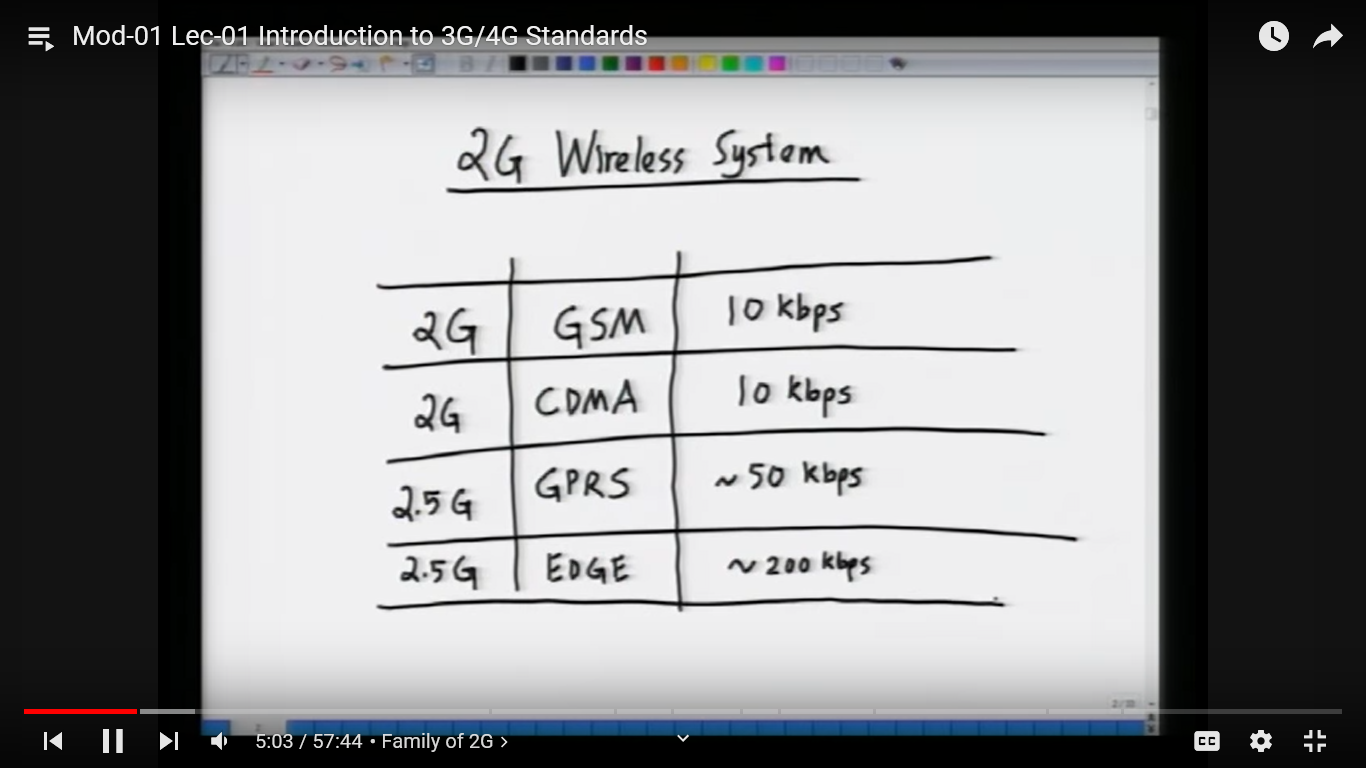 Mod-01 Lec-01 Introduction to 3G/4G Standards
2G Wireless System
2G GSM 10 kbps
2G CDMA 10 kbps
2.5G GPRS ~ 50 kbps
2.5G EDGE ~ 200 kbps
5:03 / 57:44 • Family of 2G >
CC